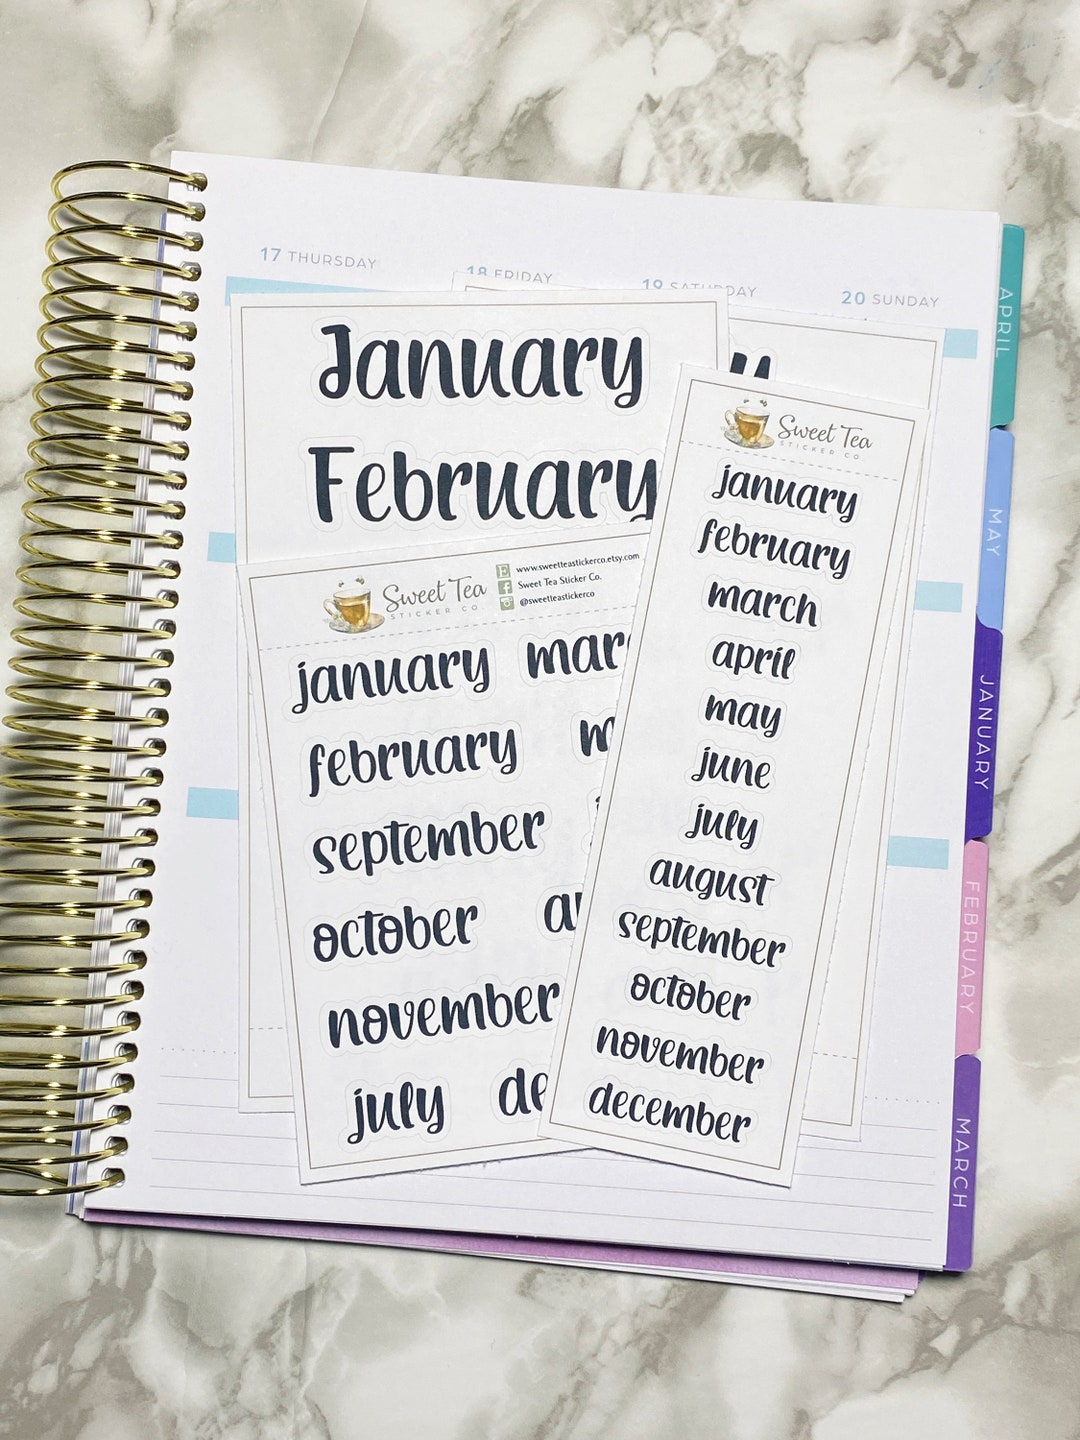 17 THURSDAY
18 FRIDAY
19 SATURDAY
20 SUNDAY
January
February
Sweet Tea
STICKER CO.
www.sweetteastickerco.etsy.com
Sweet Tea Sticker Co.
@sweetteastickerco
january
february
september
october
november
july
Sweet Tea
STICKER CO.
january
february
march
april
may
june
july
august
september
october
november
december
APRIL
MAY
JANUARY
FEBRUARY
MARCH